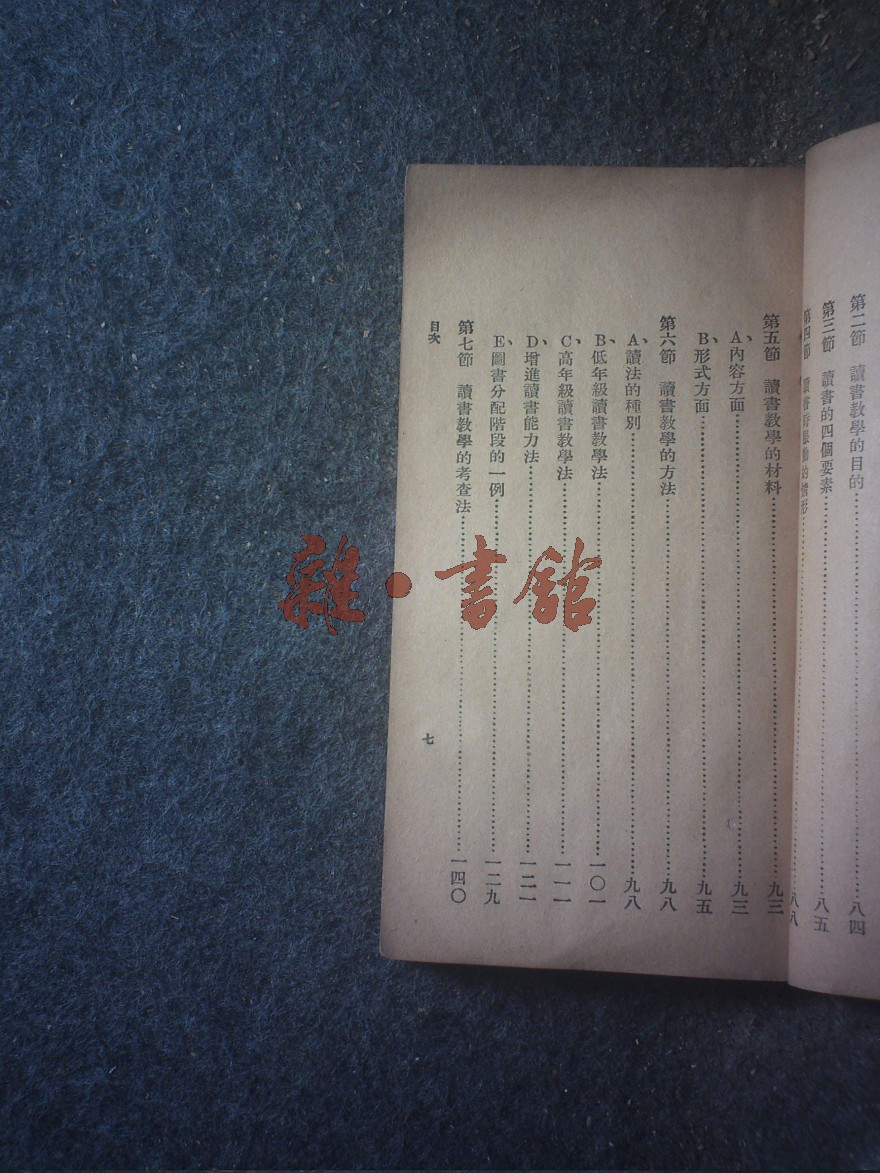 第二節　讀書教學的目的……八四
第三節　讀書的四個要素……八五
第四節　讀書時眼動的情形……八八
第五節　讀書教學的材料……九三
A、內容方面……九三
B、形式方面……九五
第六節　讀書教學的方法……九八
A、讀法的種別……九八
B、低年級讀書教學法……一〇一
C、高年級讀書教學法……一一一
D、增進讀書能力法……一二一
E、圖書分配階段的一例……一二九
第七節　讀書教學的考查法……一四〇
目次
七
雜·書館